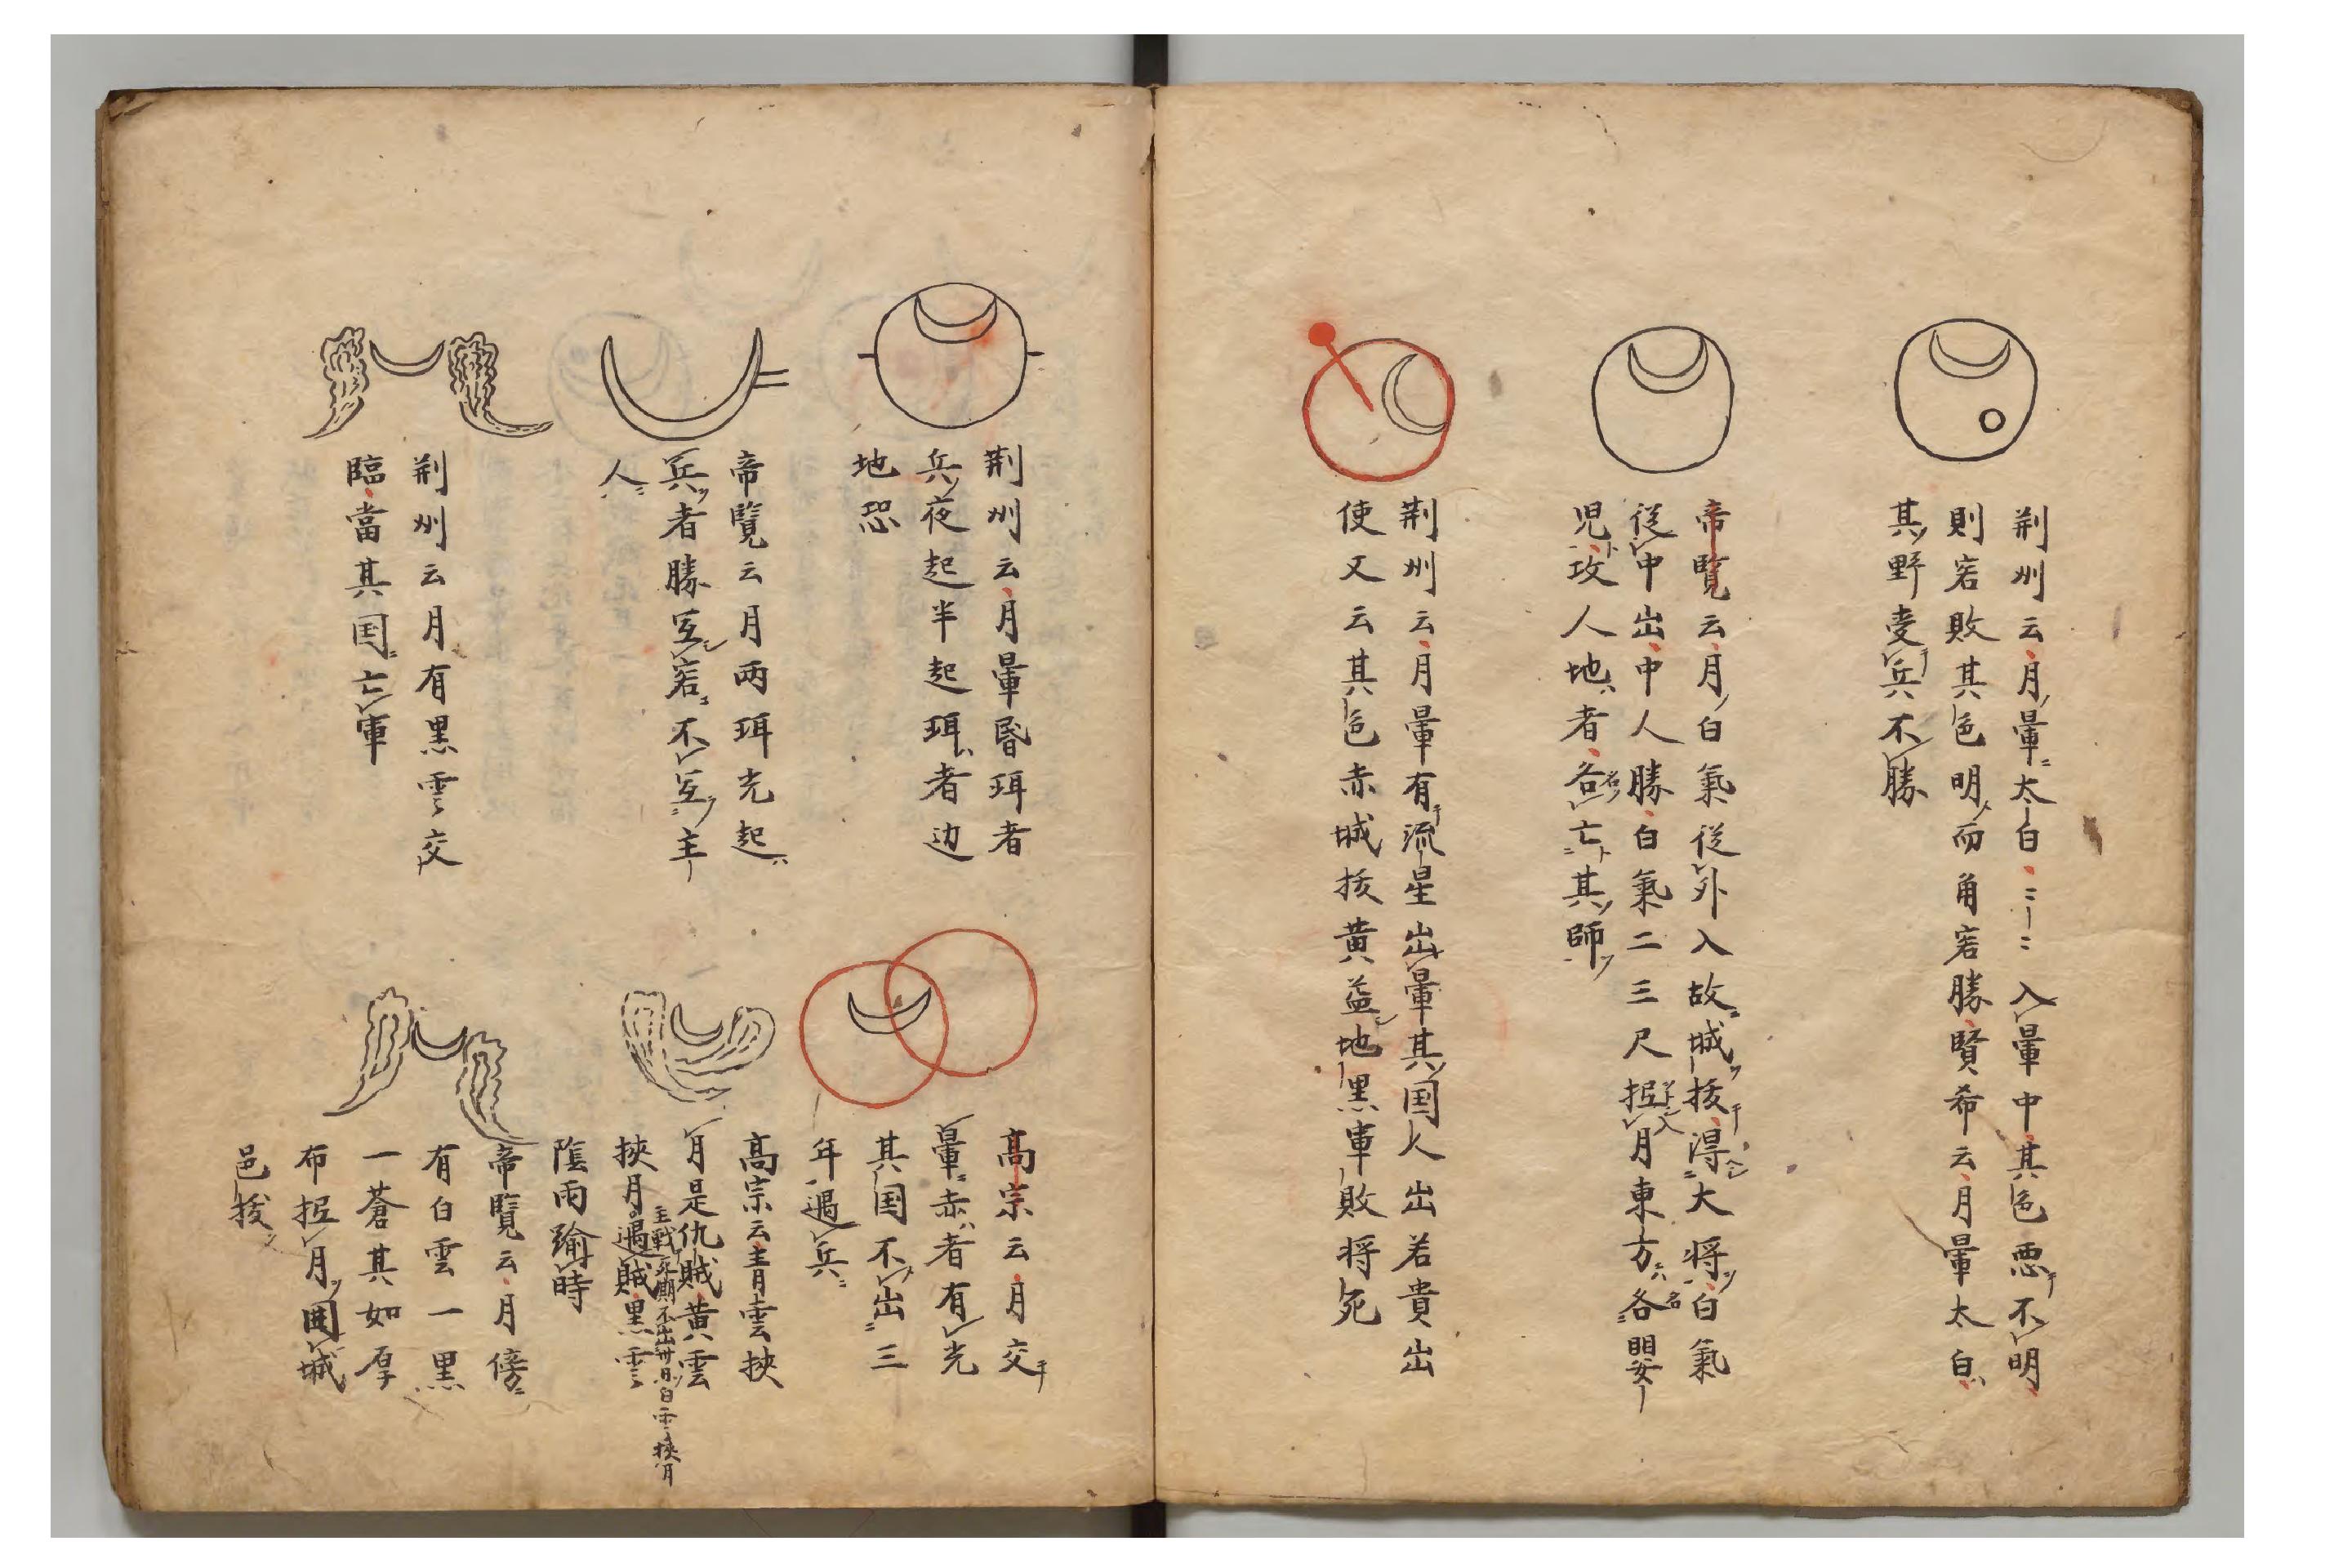 荆州云月暈太白〻〻入暈中其色悪不明
則客敗其色明而角客勝賢希云月暈太白
其野受兵不勝
帝覧云月白氣從外入故城抜得大将白氣
従中出中人勝白氣二三尺抵月東方各嬰
児攻人地者各亡其師
荆州云月暈有流星出暈其国人出若貴出
使又云其色赤城抜黄益地黒軍敗将死
荆州云月暈昏珥者
兵夜起半起珥者边
地恐
帝覧云月兩珥光起
兵者勝互客不互主
人
荆州云月有黒雲交
臨當其国亡軍
高宗云月交
暈赤者有光
其国不出三
年遇兵
高宗云青雲挟
月是仇賊黄雲
主戦不出卅日白雲挟月
挟月遇賊黒雲
陰雨踰時
帝覧云月傍
有白雲一黒
一蒼其如厚
布抵月囲城
邑抜